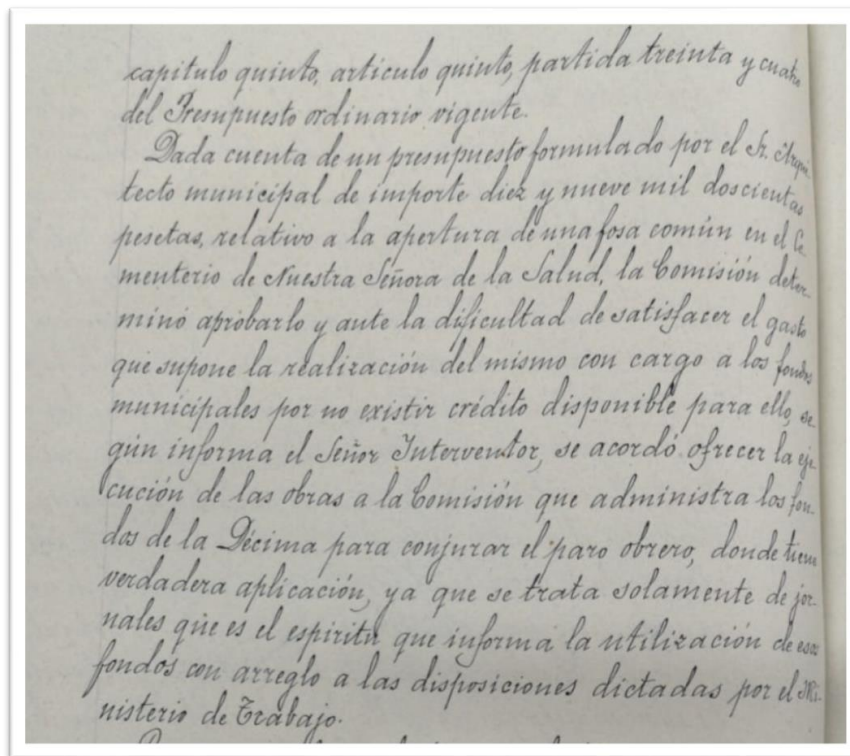 capitulo quinto, articulo quinto, partida treinta y cuatro
del Presupuesto ordinario vigente.
Dada cuenta de un presupuesto formulado por el Sr. Arqui-
tecto municipal de importe diez y nueve mil doscientas
pesetas, relativo a la apertura de una fosa común en el Ce-
menterio de Nuestra Señora de la Salud, la Comisión deter-
minó aprobarlo y ante la dificultad de satisfacer el gasto
que supone la realización del mismo con cargo a los fondos
municipales por no existir crédito disponible para ello, se-
gún informa el Señor Interventor, se acordó ofrecer la eje-
cución de las obras a la Comisión que administra los fon-
dos de la Décima para conjurar el paro obrero, donde tiene
verdadera aplicación, ya que se trata solamente de jor-
nales que es el espiritu que informa la utilización de esos
fondos con arreglo a las disposiciones dictadas por el Mi-
nisterio de Trabajo.